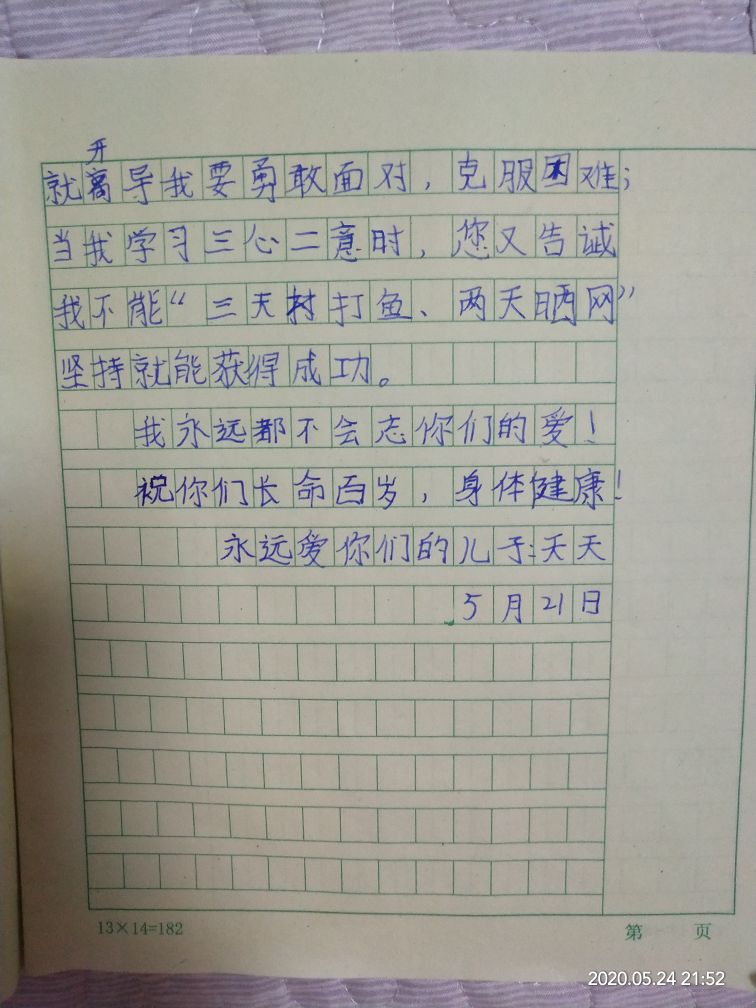 开
就离导我要勇敢面对，克服困难；
当我学习三心二意时，您又告诫
我不能“三天打鱼、两天晒网”
坚持就能获得成功。
我永远都不会忘你们的爱！
祝你们长命百岁，身体健康！
永远爱你们的儿子：天天
5月21日
13×14=182
第 页
2020.05.24 21:52